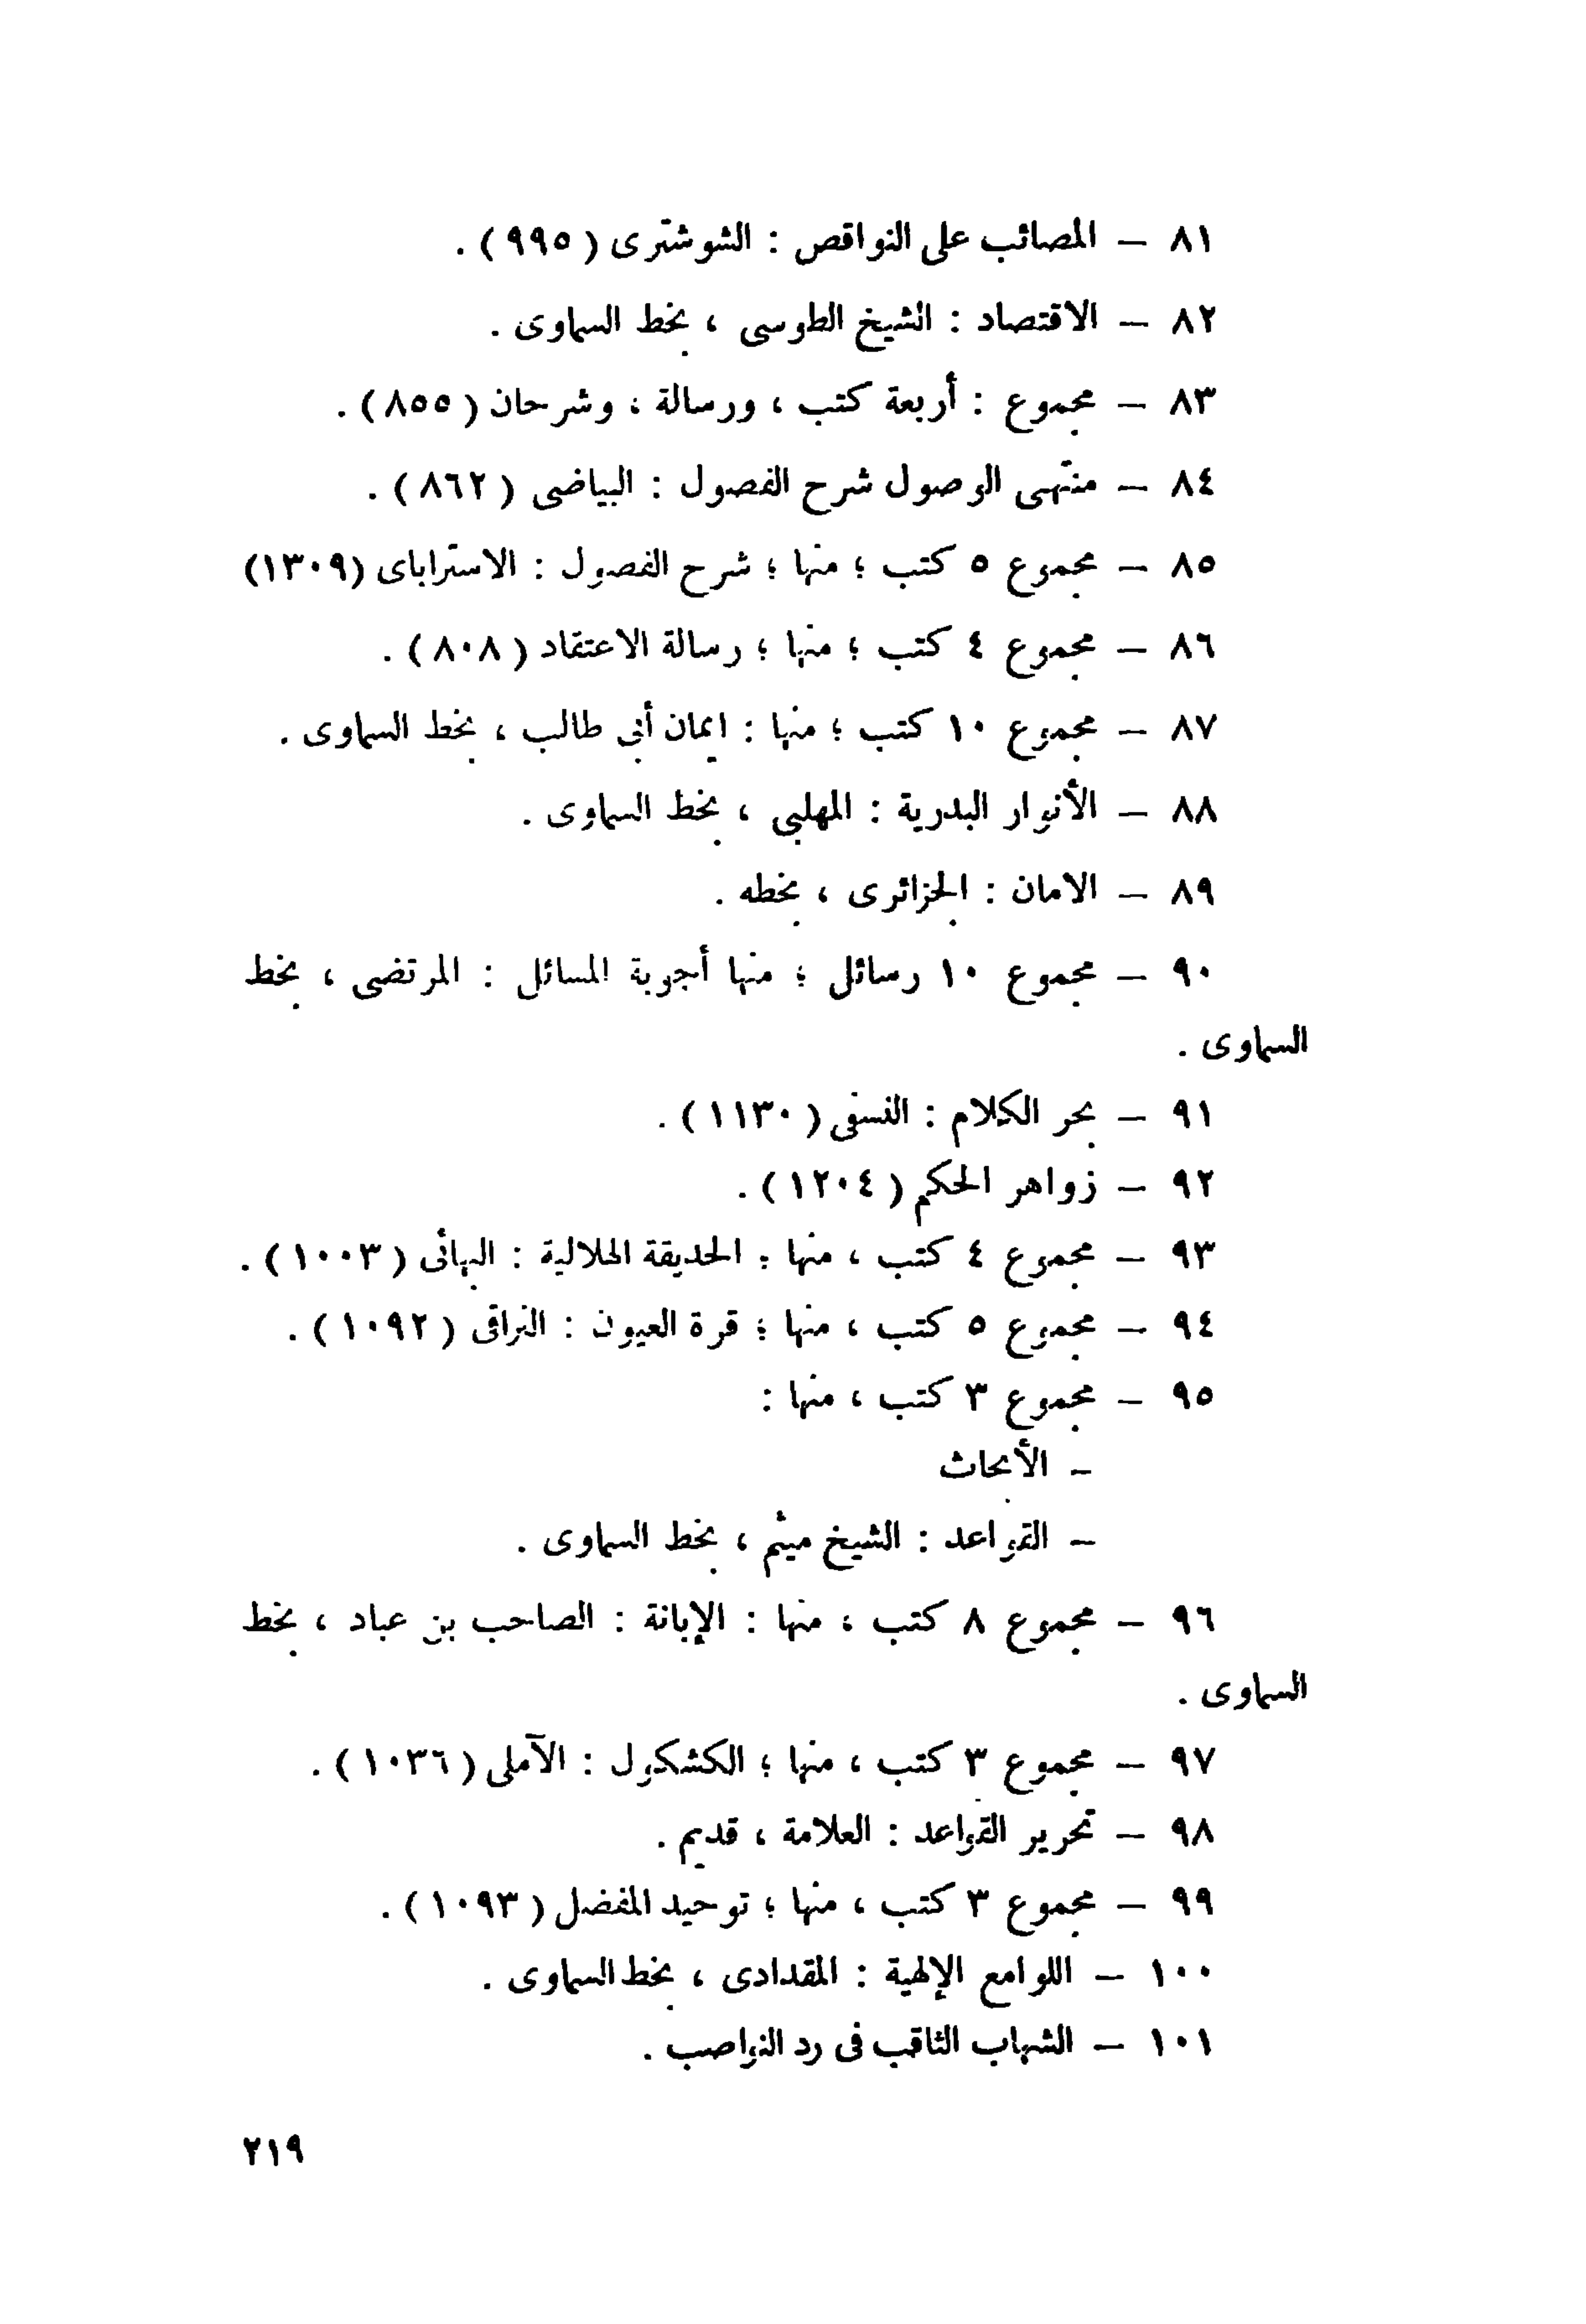 ٨١ – المصائب على النواقص : الشوشترى ( ٩٩٥ ) .
٨٢ – الاقتصاد : الشيخ الطوسى ، بخط السماوى .
٨٣ – مجموع : أربعة كتب ، ورسالة ، وشرحان ( ٨٥٥ ) .
٨٤ – منتهى الوصول شرح الفصول : البياضى ( ٨٦٢ ) .
٨٥ – مجموع ٥ كتب ؛ منها ؛ شرح الفصول : الاستراباى (١٣٠٩)
٨٦ – مجموع ٤ كتب ؛ منها ؛ رسالة الاعتقاد ( ٨٠٨ ) .
٨٧ – مجموع ١٠ كتب ؛ منها : ايمان أبى طالب ، بخط السماوى .
٨٨ – الأنوار البدرية : المهلبى ، بخط السماوى .
٨٩ – الامان : الجزائرى ، بخطه .
٩٠ – مجموع ١٠ رسائل ؛ منها أجوبة المسائل : المرتضى ، بخط
السماوى .
٩١ – بحر الكلام : النسفى ( ١١٣٠ ) .
٩٢ – زواهر الحكم ( ١٢٠٤ ) .
٩٣ – مجموع ٤ كتب ، منها : الحديقة الهلالية : البهائى ( ١٠٠٣ ) .
٩٤ – مجموع ٥ كتب ، منها ؛ قرة العيون : النراقى ( ١٠٩٢ ) .
٩٥ – مجموع ٣ كتب ، منها :
– الأبحاث
– القواعد : الشيخ ميثم ، بخط السماوى .
٩٦ – مجموع ٨ كتب ، منها : الإبانة : الصاحب بن عباد ، بخط
السماوى .
٩٧ – مجموع ٣ كتب ، منها ؛ الكشكول : الآملى ( ١٠٣٦ ) .
٩٨ – تحرير القواعد : العلامة ، قديم .
٩٩ – مجموع ٣ كتب ، منها ؛ توحيد المفضل ( ١٠٩٣ ) .
١٠٠ – اللوامع الإلهية : المقدادى ، بخط السماوى .
١٠١ – الشهاب الثاقب فى رد النواصب .
٢١٩